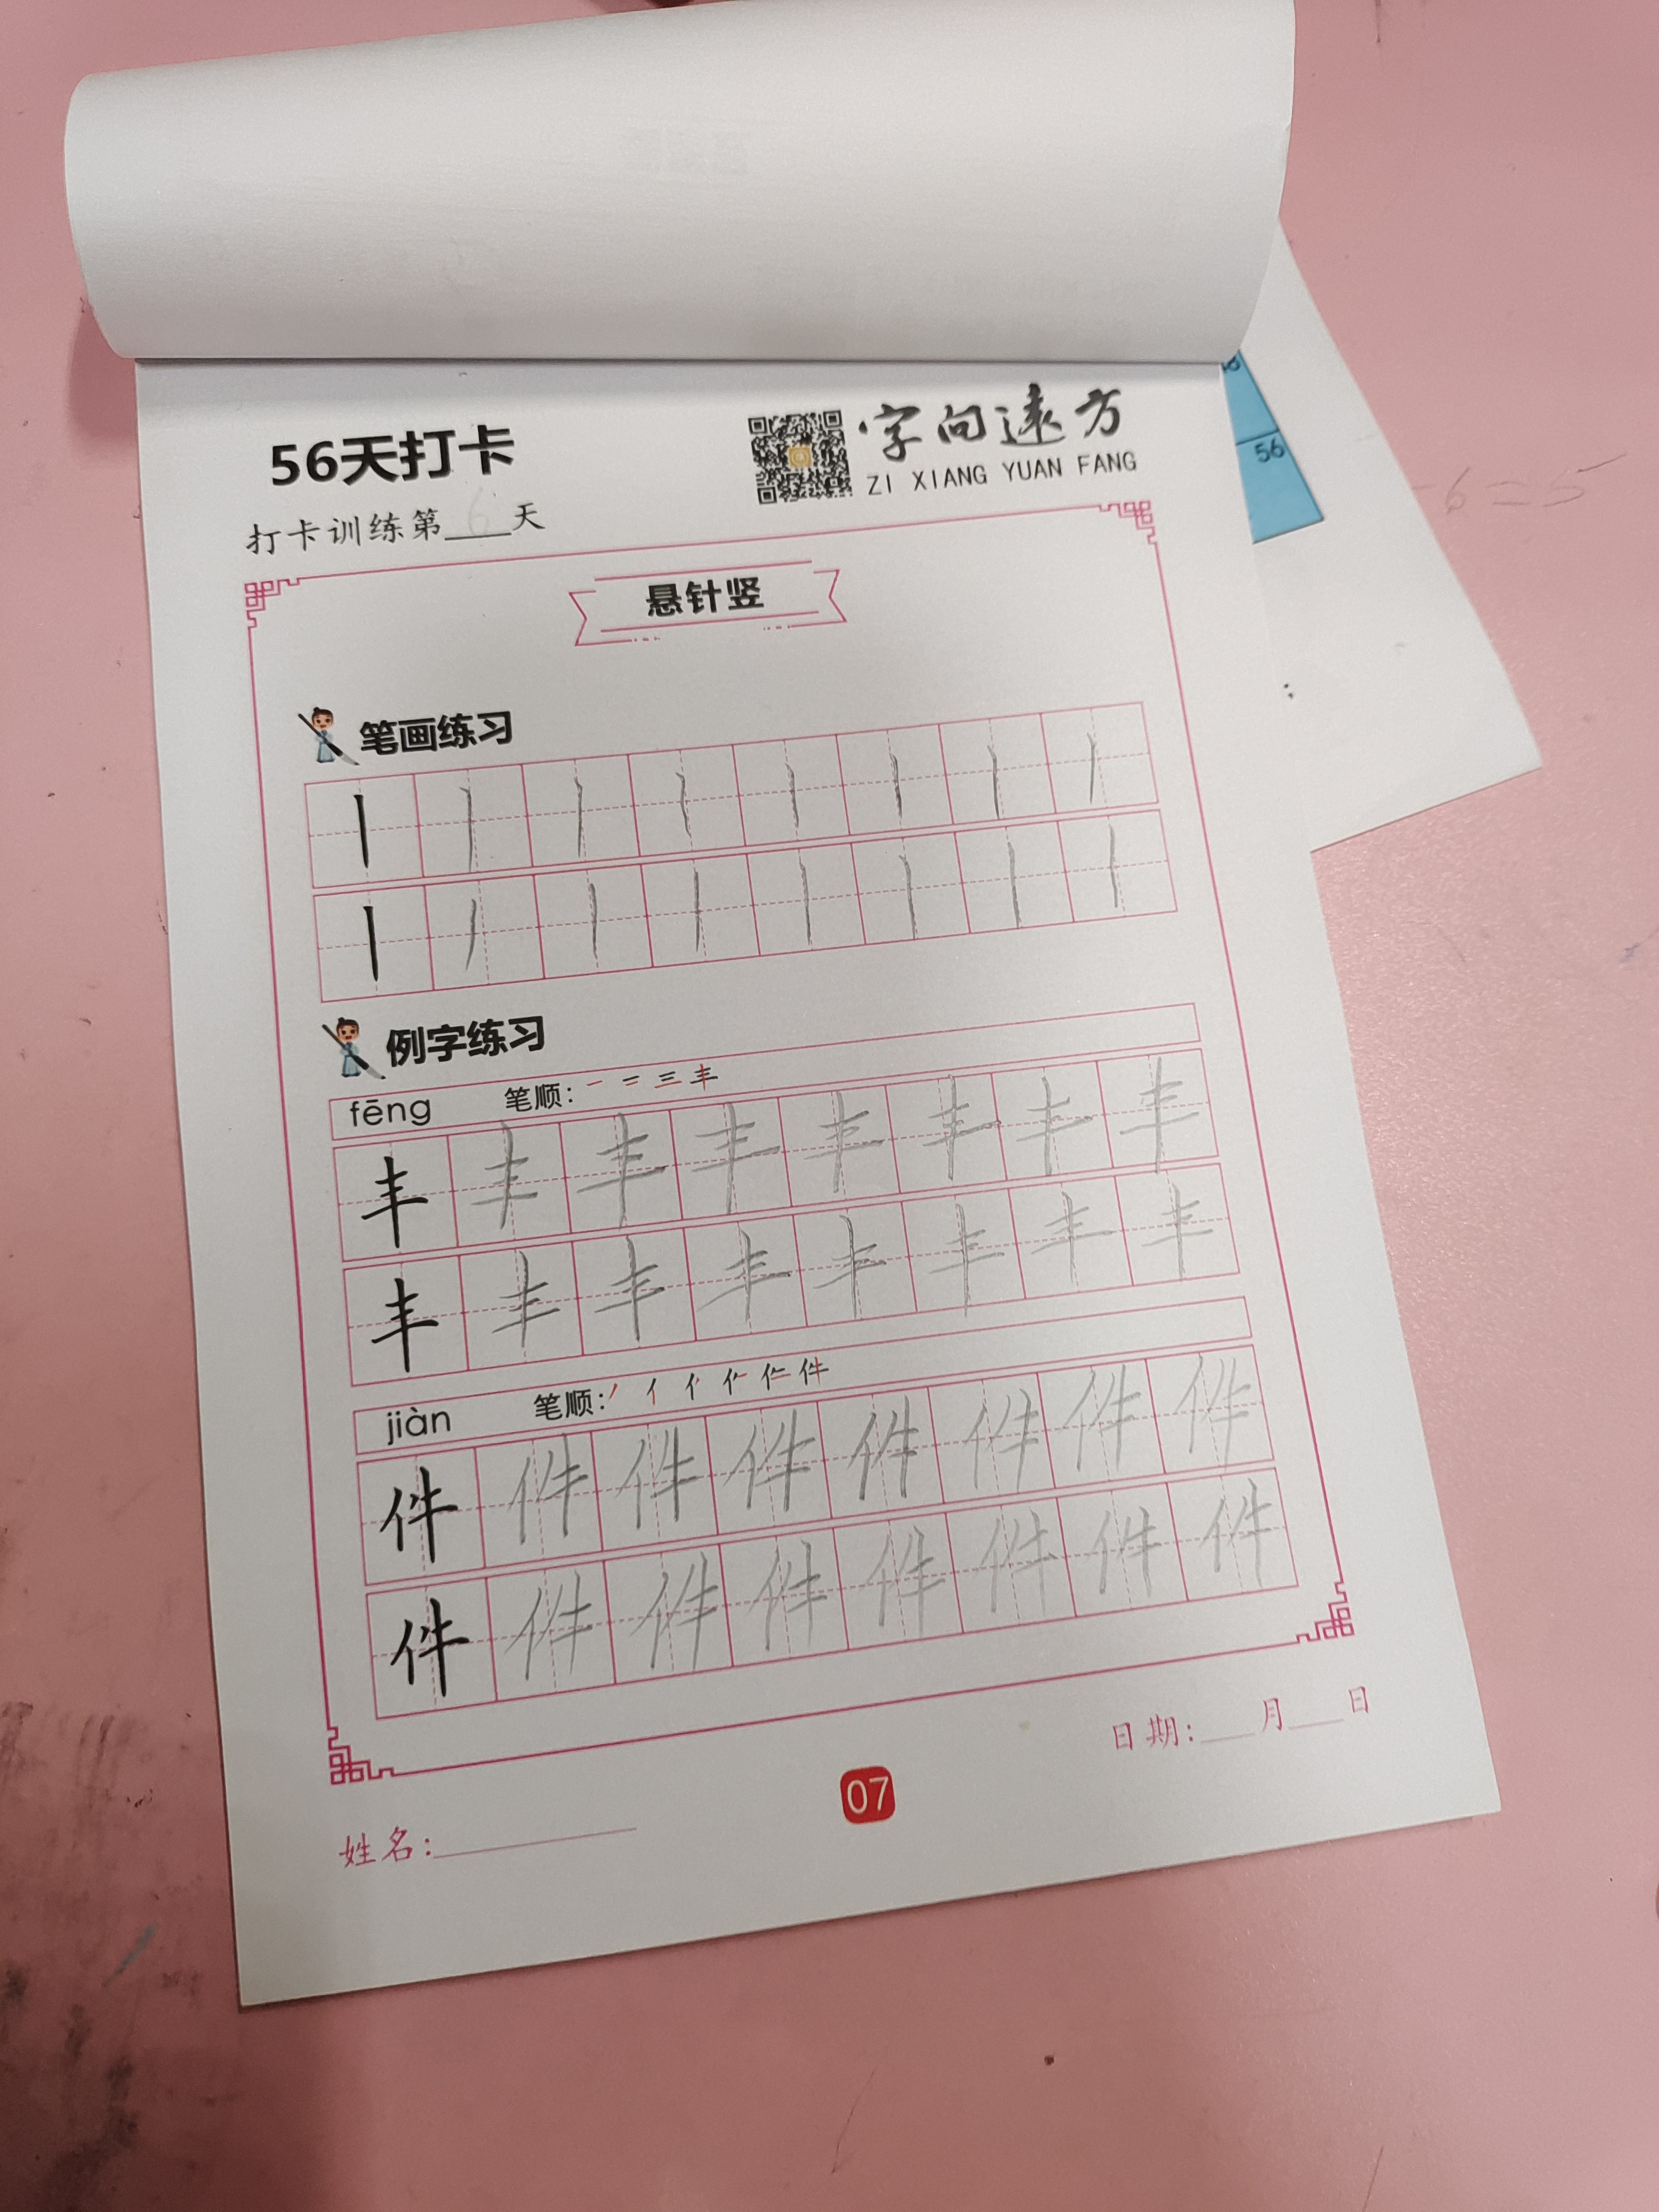 56天打卡
字向远方
ZI XIANG YUAN FANG
打卡训练第6天
悬针竖
笔画练习
例字练习
fēng 笔顺: 一 二 三 丰
丰 丰 丰 丰 丰 丰 丰 丰
丰 丰 丰 丰 丰 丰 丰 丰
jiàn 笔顺: 丿 亻 件
件 件 件 件 件 件 件 件
件 件 件 件 件 件 件 件
日期:___月___日
07
姓名:
56
6=5